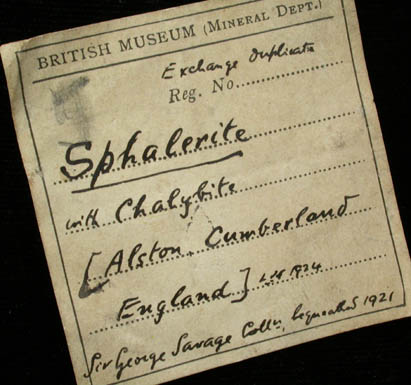 BRITISH MUSEUM (MINERAL DEPT.)
Exchange duplicate
Reg. No.
Sphalerite
with Chalybite
[Alston, Cumberland
England] 1924
Sir George Savage Colln, bequeathed 1921